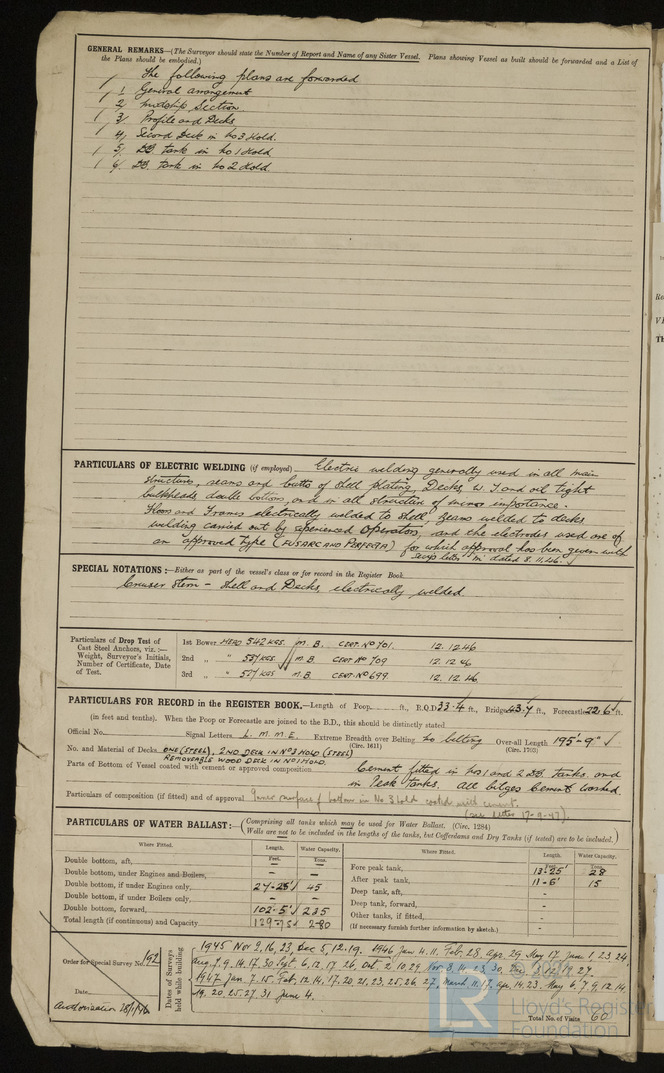 GENERAL REMARKS—(The Surveyor should state the Number of Report and Name of any Sister Vessel. Plans showing Vessel as built should be forwarded and a List of
the Plans should be embodied.)
The following plans are forwarded
/ 1, General arrangement
/ 2, Midship Section
/ 3, Profile and Decks
/ 4, Second Deck in No 3 Hold.
/ 5, DB. Tank in No 1 Hold
/ 6, DB. Tank in No 2 Hold.
PARTICULARS OF ELECTRIC WELDING (if employed) Electric welding generally used in all main
structure, seams and butts of shell plating, Decks, W.T. and oil tight
bulkheads, double bottoms, and in all structure of minor importance.
Floors and Frames electrically welded to shell, Beams welded to decks
welding carried out by experienced Operators, and the electrodes used are of
an approved type (FUSARC AND PERFECTA) for which approval has been given with
letter "M" dated 8.11.46.
SPECIAL NOTATIONS :—Either as part of the vessel's class or for record in the Register Book
Cruiser Stern – Shell and Decks, electrically welded
Particulars of Drop Test of
Cast Steel Anchors, viz. :—
Weight, Surveyor's Initials,
Number of Certificate, Date
of Test.
1st Bower HEAD 542 KGS. M.B. CERT. No 701. 12.12.46
2nd „ „ 557 KGS M.B. CERT No 709 12.12.46
3rd „ „ 557 KGS M.B. CERT. No 699. 12.12.46.
PARTICULARS FOR RECORD in the REGISTER BOOK.—Length of Poop ft., R.Q.D 33.4 ft., Bridge 43.7 ft., Forecastle 22.6 ft.
(in feet and tenths). When the Poop or Forecastle are joined to the B.D., this should be distinctly stated
Official No. Signal Letters L. M. M. E. Extreme Breadth over Belting No belting Over-all Length 195'-9"
(Circ. 1611) (Circ. 1703)
No. and Material of Decks ONE (STEEL), 2ND DECK IN No 3 HOLD (STEEL)
REMOVEABLE WOOD DECK IN No 1 HOLD.
Parts of Bottom of Vessel coated with cement or approved composition Cement fitted in Nos 1 and 2 DB. Tanks. and
in Peak tanks. All bilges Cement washed.
Particulars of composition (if fitted) and of approval Inner surface of bottom in No 3 Hold coated with cement.
(see letter 17-9-47).
PARTICULARS OF WATER BALLAST:—(Comprising all tanks which may be used for Water Ballast. (Circ. 1284)
Wells are not to be included in the lengths of the tanks, but Cofferdams and Dry Tanks (if tested) are to be included.)
Where Fitted. Length. Water Capacity.
Feet. Tons.
Double bottom, aft, – –
Double bottom, under Engines and Boilers, – –
Double bottom, if under Engines only, 27-25' 45
Double bottom, if under Boilers only, – –
Double bottom, forward, 102-5' 235
Total length (if continuous) and Capacity 129-75' 280
Where Fitted. Length. Water Capacity.
Feet. Tons.
Fore peak tank, 13-25' 28
After peak tank, 11-6' 15
Deep tank, aft, –
Deep tank, forward, –
Other tanks, if fitted, –
(If necessary furnish further information by sketch.) –
Order for Special Survey No. 192
Date
Authorization
Dates of Surveys
held while building
1945 Nov 2, 16, 23, Dec 5, 12, 19. 1946 Jan 4. 11. Feb. 28, Apr. 29, May 17. June 1, 23, 24
Aug. 7, 9. 14. 17. 30 Sept. 6, 12, 17, 26, Oct. 2, 10, 29. Nov. 8, 14, 23, 30, Dec. 3, 12, 19, 27.
1947 Jan. 7. 15. Feb. 12, 14, 17, 20, 21, 23, 25, 26, 27, March 11, 17, Apr. 14, 23. May 6, 7, 9, 12, 14
19. 20. 25, 27, 31 June 4.
Total No. of Visits 60
LR
Lloyd's Register
Foundation